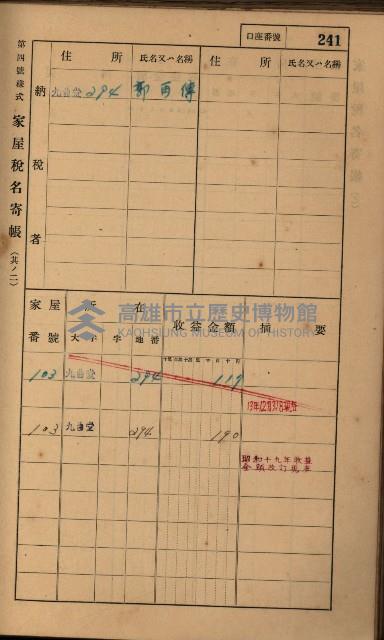 口座番號 241
第四號樣式 家屋稅名寄帳 (其ノ二)
納稅者
住所 氏名又ハ名稱 住所 氏名又ハ名稱
九曲堂 294
家屋番號 所在 收益金額 摘要
大字 字 地番
103 九曲堂 294 119
103 九曲堂 294 190
昭和十九年收益
金額改訂現在
高雄市立歷史博物館
KAOHSIUNG MUSEUM OF HISTORY